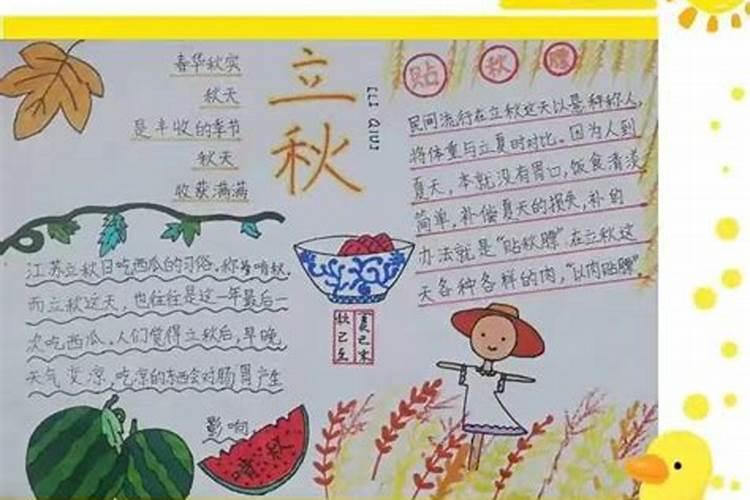 春华秋实
秋天
是丰收的季节
秋天
收获满满
立秋
LI QIU
贴秋膘
民间流行在立秋这天以悬秤称人,
将体重与立夏时对比。因为人到
夏天,本就没有胃口,饭食清淡
简单,补偿夏天的损失,补的
办法就是“贴秋膘”在立秋这
天各种各样的肉,“以肉贴膘”.
江苏立秋日吃西瓜的习俗.称为啃秋.
而立秋这天,也往往是这一年最后一
次吃西瓜.人们觉得立秋后,早晚
天气变凉,吃凉的东西会对肠胃产生
影响.
秋已至
夏已末
啃秋